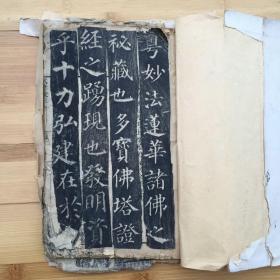 粵妙法蓮華諸佛之
祕藏也多寶佛塔證
經之踴現也發明資
乎十力弘建在於